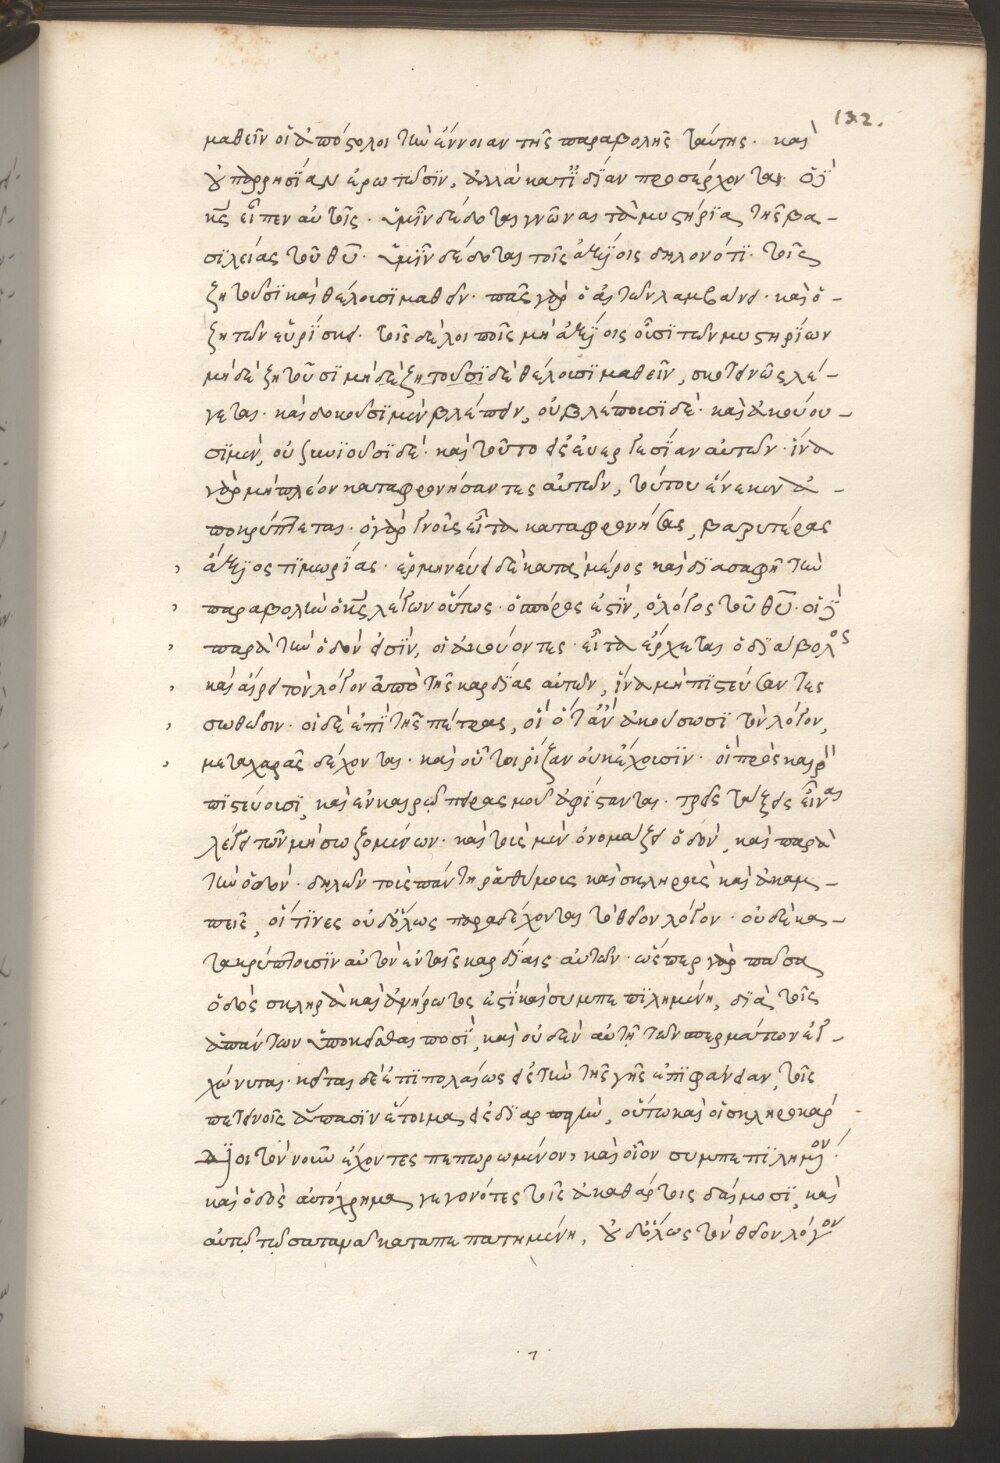 132.
μαθεῖν οἱ ἀπόστολοι τὴν ἔννοιαν τῆς παραβολῆς ταύτης. καὶ
οὐ παρρησίαν ἐρωτῶσιν, ἀλλὰ κατϊδίαν προσέρχονται. ὁ
κς εἶπεν αὐτοῖς. ὑμῖν δέδοται γνῶναι τὰ μυστήρια τῆς βα-
σιλείας τοῦ θυ. ὑμῖν δέδοται τοῖς ἀξίοις δηλονότι. τοῖς
ζητοῦσι καὶ θέλουσι μαθεῖν. πᾶς γὰρ ὁ αἰτῶν λαμβάνει. καὶ ὁ-
ζητῶν εὑρίσκει. τοῖς δὲ λοιποῖς μὴ ἀξίοις οὖσι τῶν μυστηρίων
μηδὲ ζητοῦσι μηδὲ ζητοῦσι δὲ θέλουσι μαθεῖν, σκοτεινῶς λέ-
γεται. καὶ δοκοῦσι μὲν βλέπειν, οὐ βλέπουσι δέ. καὶ ἀκούου-
σι μὲν, οὐ ξυνιοῦσι δέ. καὶ τοῦτο εἰς εὐεργεσίαν αὐτῶν. ἵνα
γὰρ μὴ πλέον καταφρονήσαντες αὐτῶν, τούτου ἕνεκεν ἀ-
ποκρύπτεται. ὁ γὰρ γνοὺς εἶτα καταφρονήσας, βαρυτέρας
ἄξιος τιμωρίας. ἑρμηνεύει δὲ κατὰ μέρος καὶ διασαφῆ τὴν
παραβολὴν ὁ κς λέγων οὕτως. ὁ σπόρος ἐστὶν, ὁ λόγος τοῦ θυ. οἱ
παρὰ τὴν ὁδὸν εἰσὶν, οἱ ἀκούοντες. εἶτα ἔρχεται ὁ διάβολος
καὶ αἴρει τὸν λόγον ἀπὸ τῆς καρδίας αὐτῶν, ἵνα μὴ πιστεύσαντες
σωθῶσιν. οἱ δὲ ἐπὶ τῆς πέτρας, οἳ ὅταν ἀκούσωσι τὸν λόγον,
μετὰ χαρᾶς δέχονται. καὶ οὗτοι ῥίζαν οὐκ ἔχουσιν. οἳ πρὸς καιρὸ
πιστεύουσι, καὶ ἐν καιρῷ πειρασμοῦ ἀφίστανται. εἶναι
λέγει τῶν μὴ σωζομένων. καὶ τοὺς μὲν ὀνομάζει ὁδὸν, καὶ παρὰ
τὴν ὁδὸν. δηλῶν τοὺς πάντη ῥαθύμους καὶ σκληροὺς καὶ ἀκαμ-
πεῖς, οἵτινες οὐδόλως παραδέχονται τὸ θεῖον λόγον. οὐδὲ κα-
τακρύπτουσιν αὐτὸν ἐν ταῖς καρδίαις αὐτῶν. ὥσπερ γὰρ πᾶσα
ὁδὸς σκληρὰ καὶ ἀνήροτος ἐστὶ καὶ συμπεπιλημένη, διὰ τοῖς
ἁπάντων ὑποκεῖσθαι ποσὶ, καὶ οὐδὲν αὐτῇ τῶν σπερμάτων ἐγ-
χώννυται. κεῖται δὲ ἐπιπολαίως εἰς τὴν τῆς γῆς ἐπιφάνειαν, τοῖς
πετεινοῖς ἅπασιν ἕτοιμα εἰς διαρπαγὴν, οὕτω καὶ οἱ σκληροκάρ
διοι τὸν νοῦν ἔχοντες πεπωρωμένον, καὶ οἷον συμπεπιλημένον.
καὶ ὁδὸς αὐτόχρημα γεγονότες τοῖς ἀκαθάρτοις δαίμοσι, καὶ
αὐτῷ τῷ σατανᾷ καταπεπατημένη, οὐδόλως τὸν θεῖον λόγον